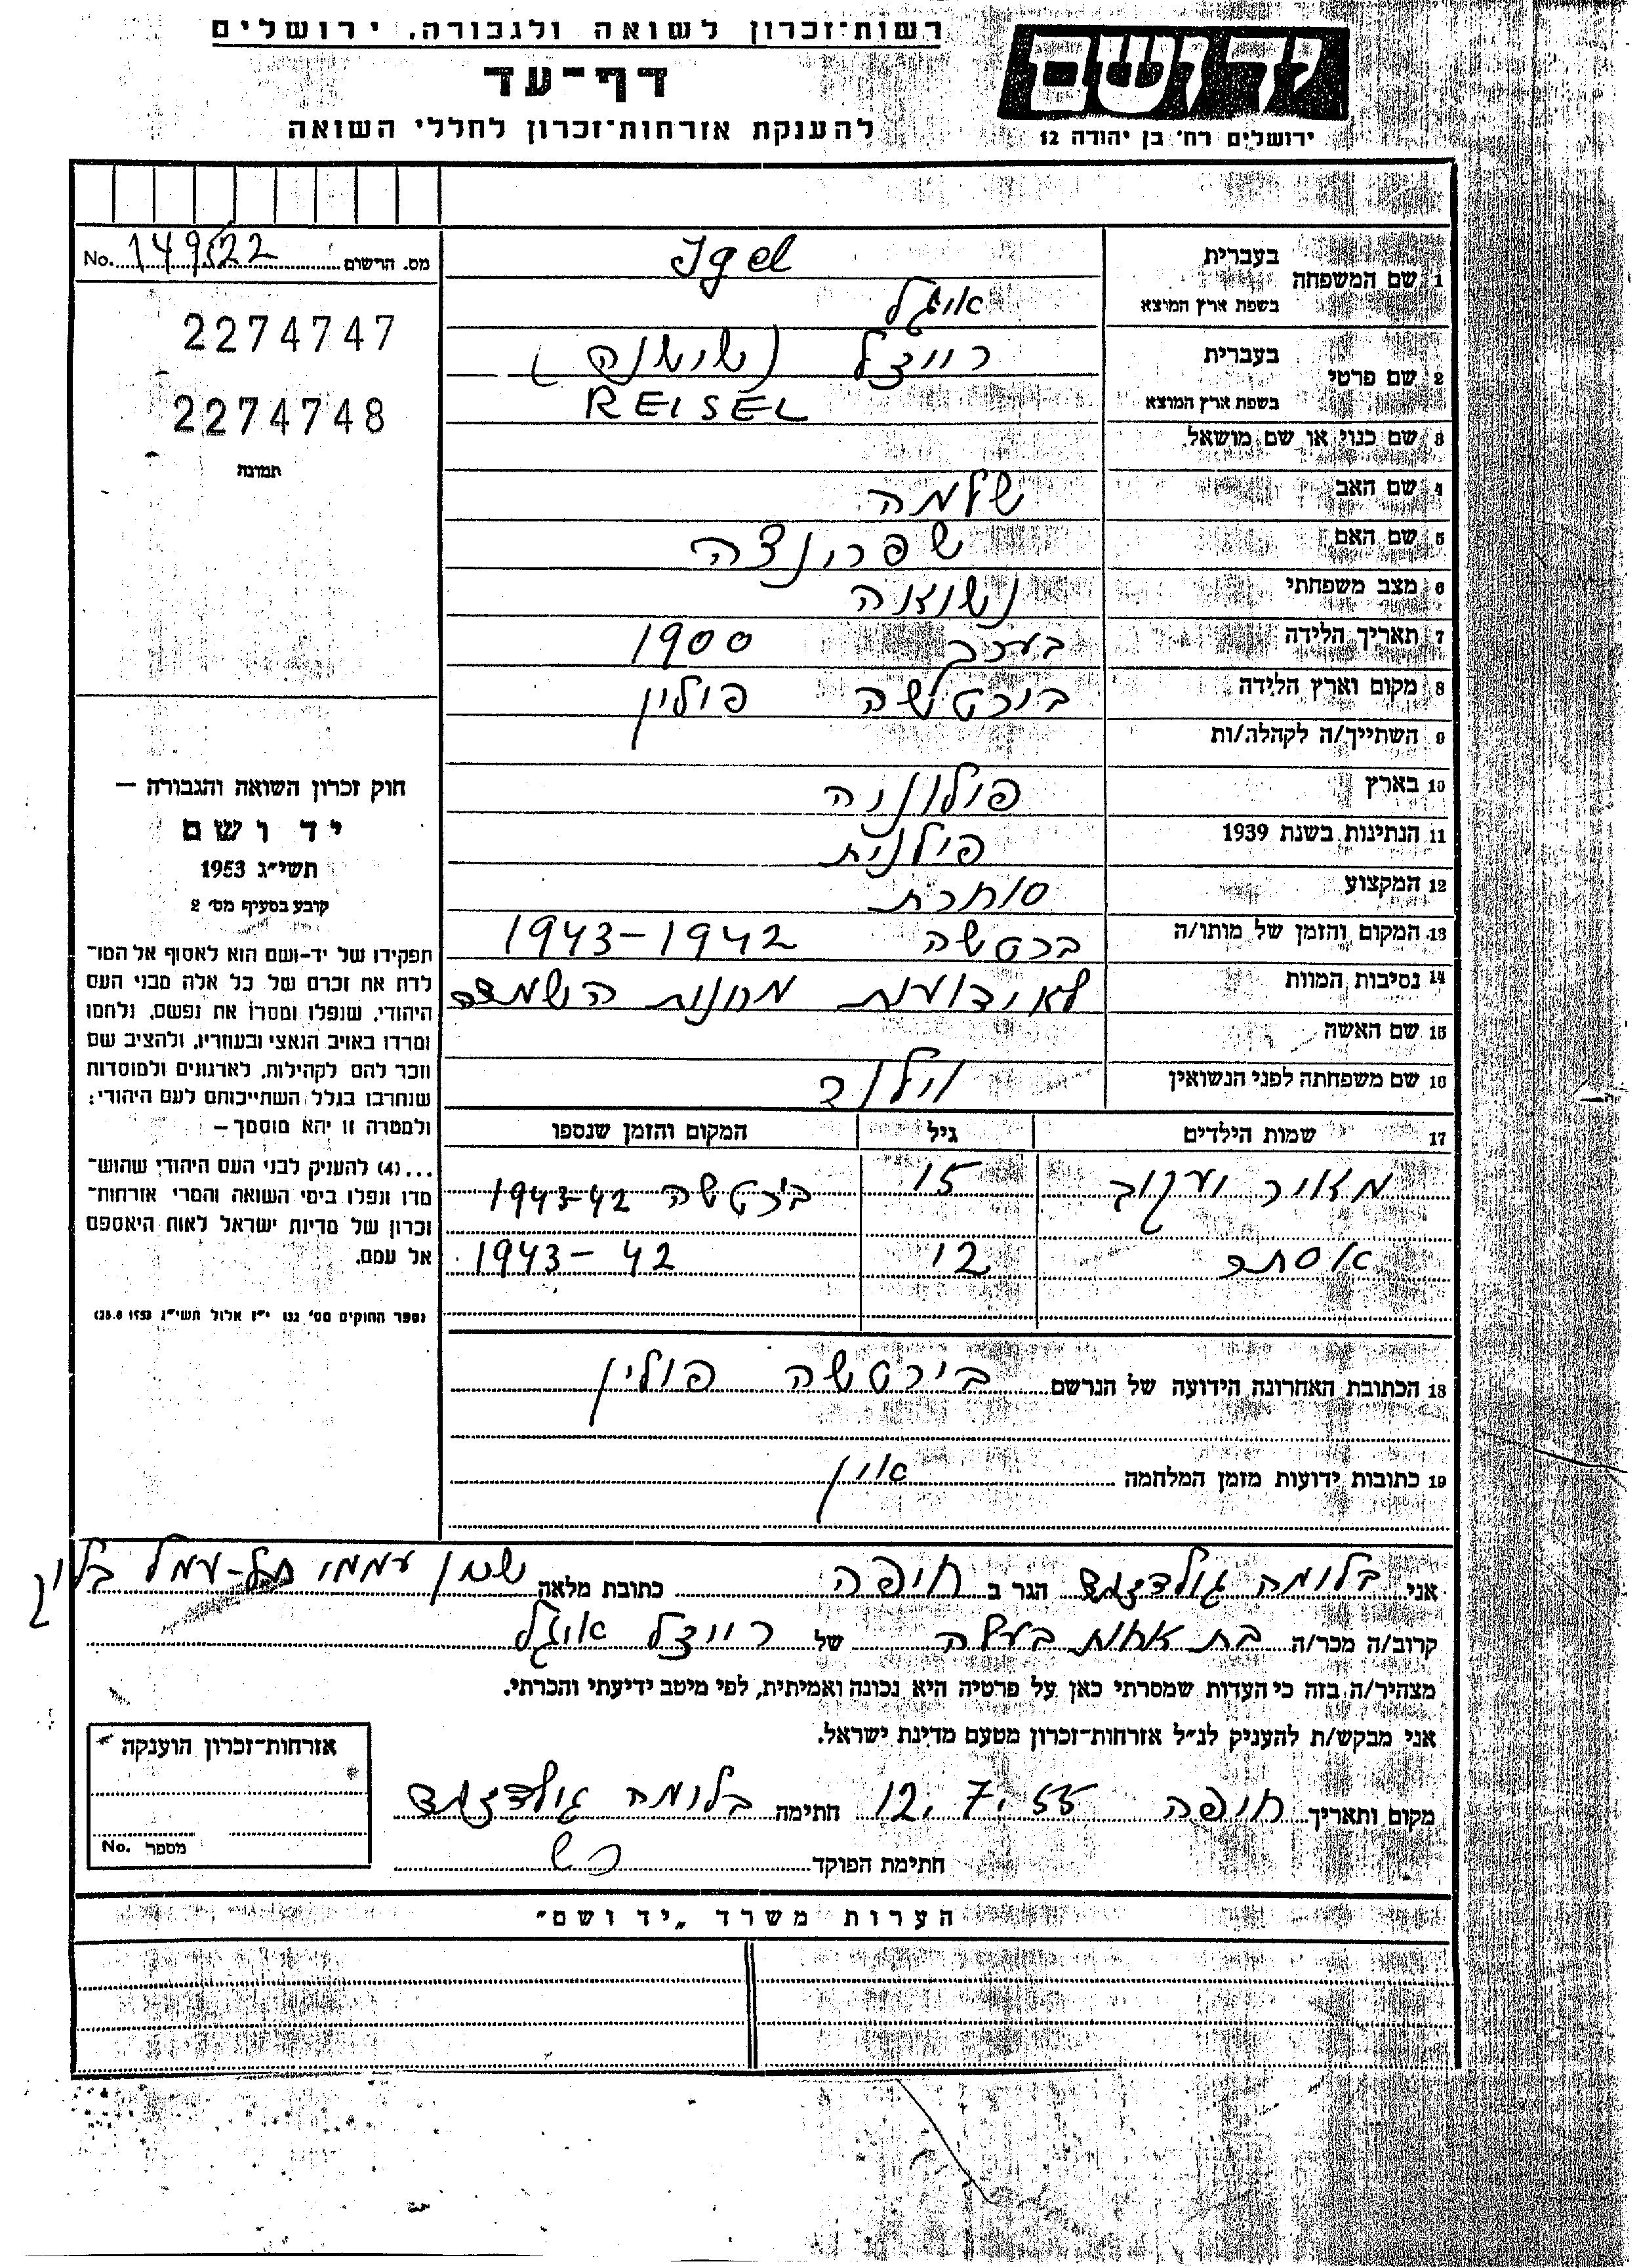 רשות־זכרון לשואה ולגבורה, ירושלים
יד ושם
דף־עד
ירושלים רח' בן יהודה 12
להענקת אזרחות־זכרון לחללי השואה
מס. הרשום 149522 No.
2274747
2274748
תמונה
1 שם המשפחה בעברית Igel
בשפת ארץ המוצא אייגל
2 שם פרטי בעברית רייזל (שושנה)
בשפת ארץ המוצא REISEL
3 שם כנוי או שם מושאל
4 שם האב שלמה
5 שם האם שפרינצה
6 מצב משפחתי נשואה
7 תאריך הלידה בערך 1900
8 מקום וארץ הלידה בורטשה פולין
9 השתייך/ה לקהלה/ות
10 בארץ פולוניה
11 הנתינות בשנת 1939 פולנית
12 המקצוע סוחרת
13 המקום והזמן של מותו/ה ברטשה 1943-1942
14 נסיבות המוות לא ידועות מחנות השמדה
15 שם האשה
16 שם משפחתה לפני הנשואין וילנר
17 שמות הילדים גיל המקום והזמן שנספו
מאיר יעקוב 15 בירטשה 1943-42
אסתר 12 1943-42
18 הכתובת האחרונה הידועה של הנרשם בירטשה פולין
19 כתובות ידועות מזמן המלחמה אין
חוק זכרון השואה והגבורה —
יד ושם
תשי״ג 1953
קובע בסעיף מס' 2
תפקידו של יד-ושם הוא לאסוף אל המו־
לדת את זכרם של כל אלה מבני העם
היהודי, שנפלו ומסרו את נפשם, נלחמו
ומרדו באויב הנאצי ובעוזריו, ולהציב שם
וזכר להם לקהילות, לארגונים ולמוסדות
שנחרבו בגלל השתייכותם לעם היהודי;
ולמטרה זו יהא מוסמך —
...(4) להעניק לבני העם היהודי שהוש־
מדו ונפלו בימי השואה והמרי אזרחות־
זכרון של מדינת ישראל לאות היאספם
אל עמם.
(ספר החוקים מס' 132 י״ז אלול תשי״ג 28.8.1953)
אני בלומה הגר ב חיפה כתובת מלאה שכון עממי תל-עמל בלוק
קרוב/ה מכר/ה בת אחות בעלה של רייזל אייגל
מצהיר/ה בזה כי העדות שמסרתי כאן על פרטיה היא נכונה ואמיתית, לפי מיטב ידיעתי והכרתי.
אני מבקש/ת להעניק לנ״ל אזרחות־זכרון מטעם מדינת ישראל.
מקום ותאריך חיפה 12.7.55 חתימה בלומה
חתימת הפוקד
אזרחות־זכרון הוענקה
מספר No.
הערות משרד „יד ושם"